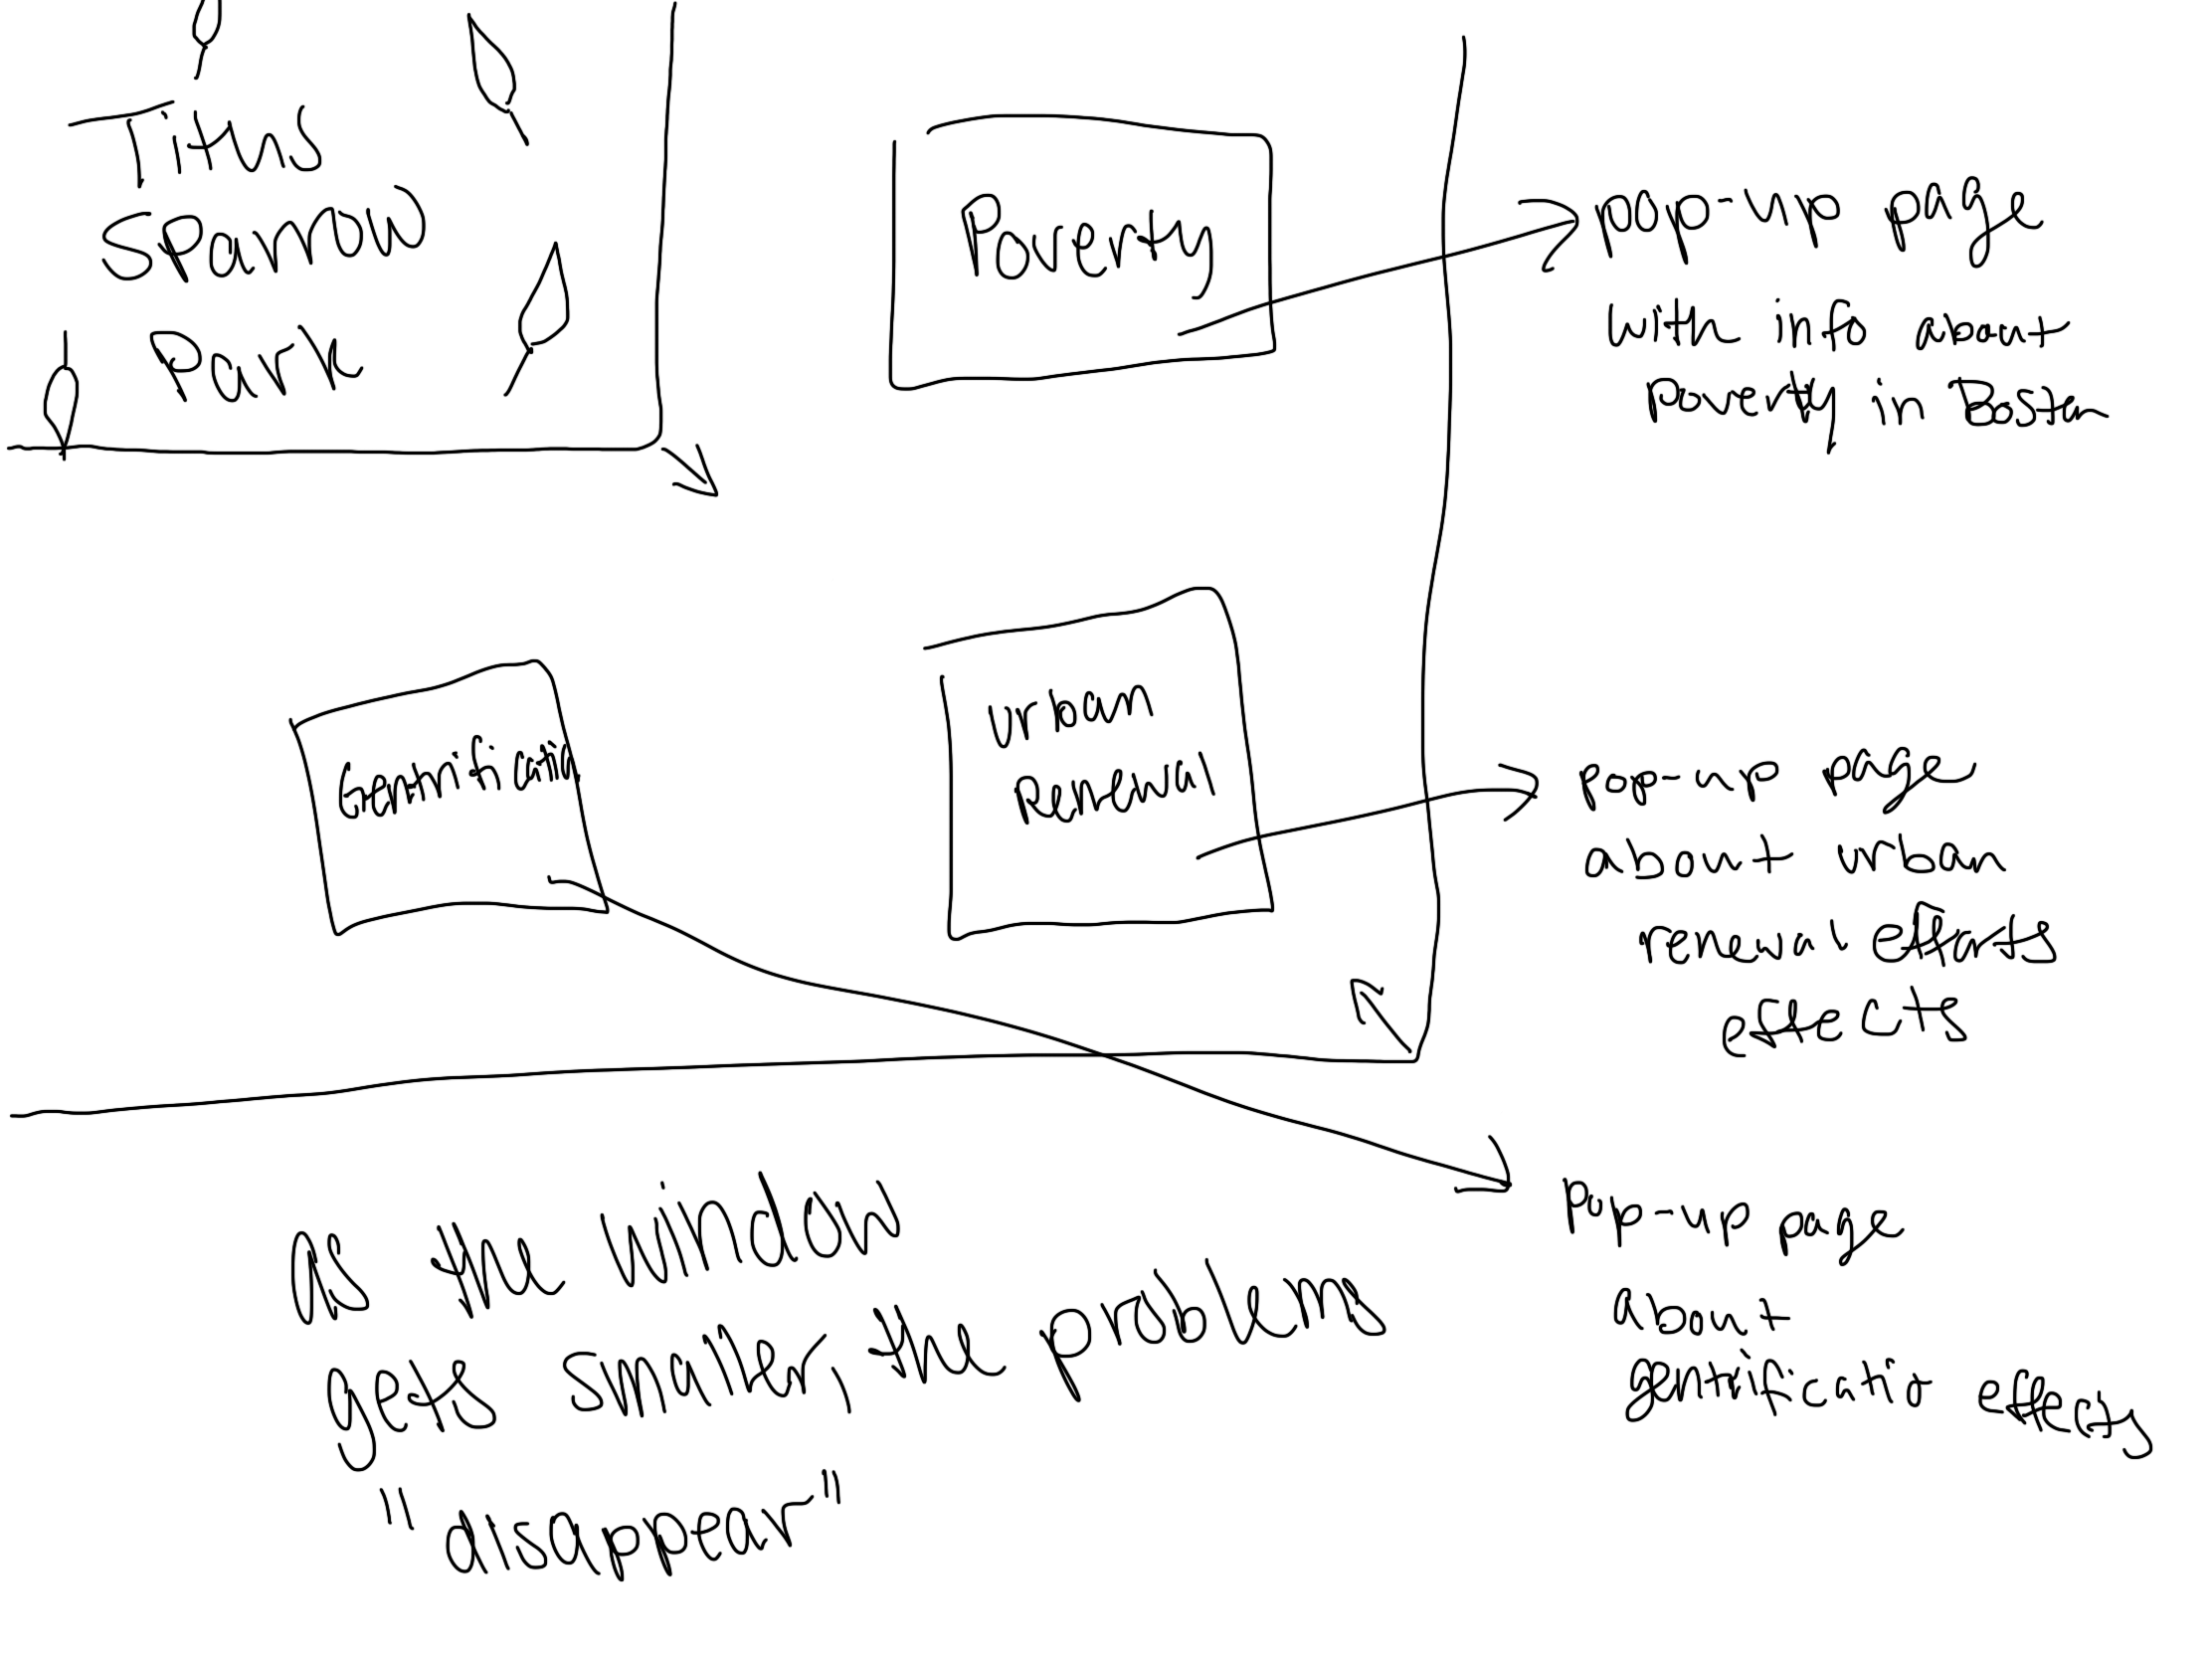 Titus
Sparrow
Park
Poverty
pop-up page
with info about
Poverty in Boston
Gentrification
urban
Renewal
Pop-up page
about urban
renewal efforts
effects
Pop-up page
about
gentrificatio effects
as the window
gets smaller, the problems
"disappear"